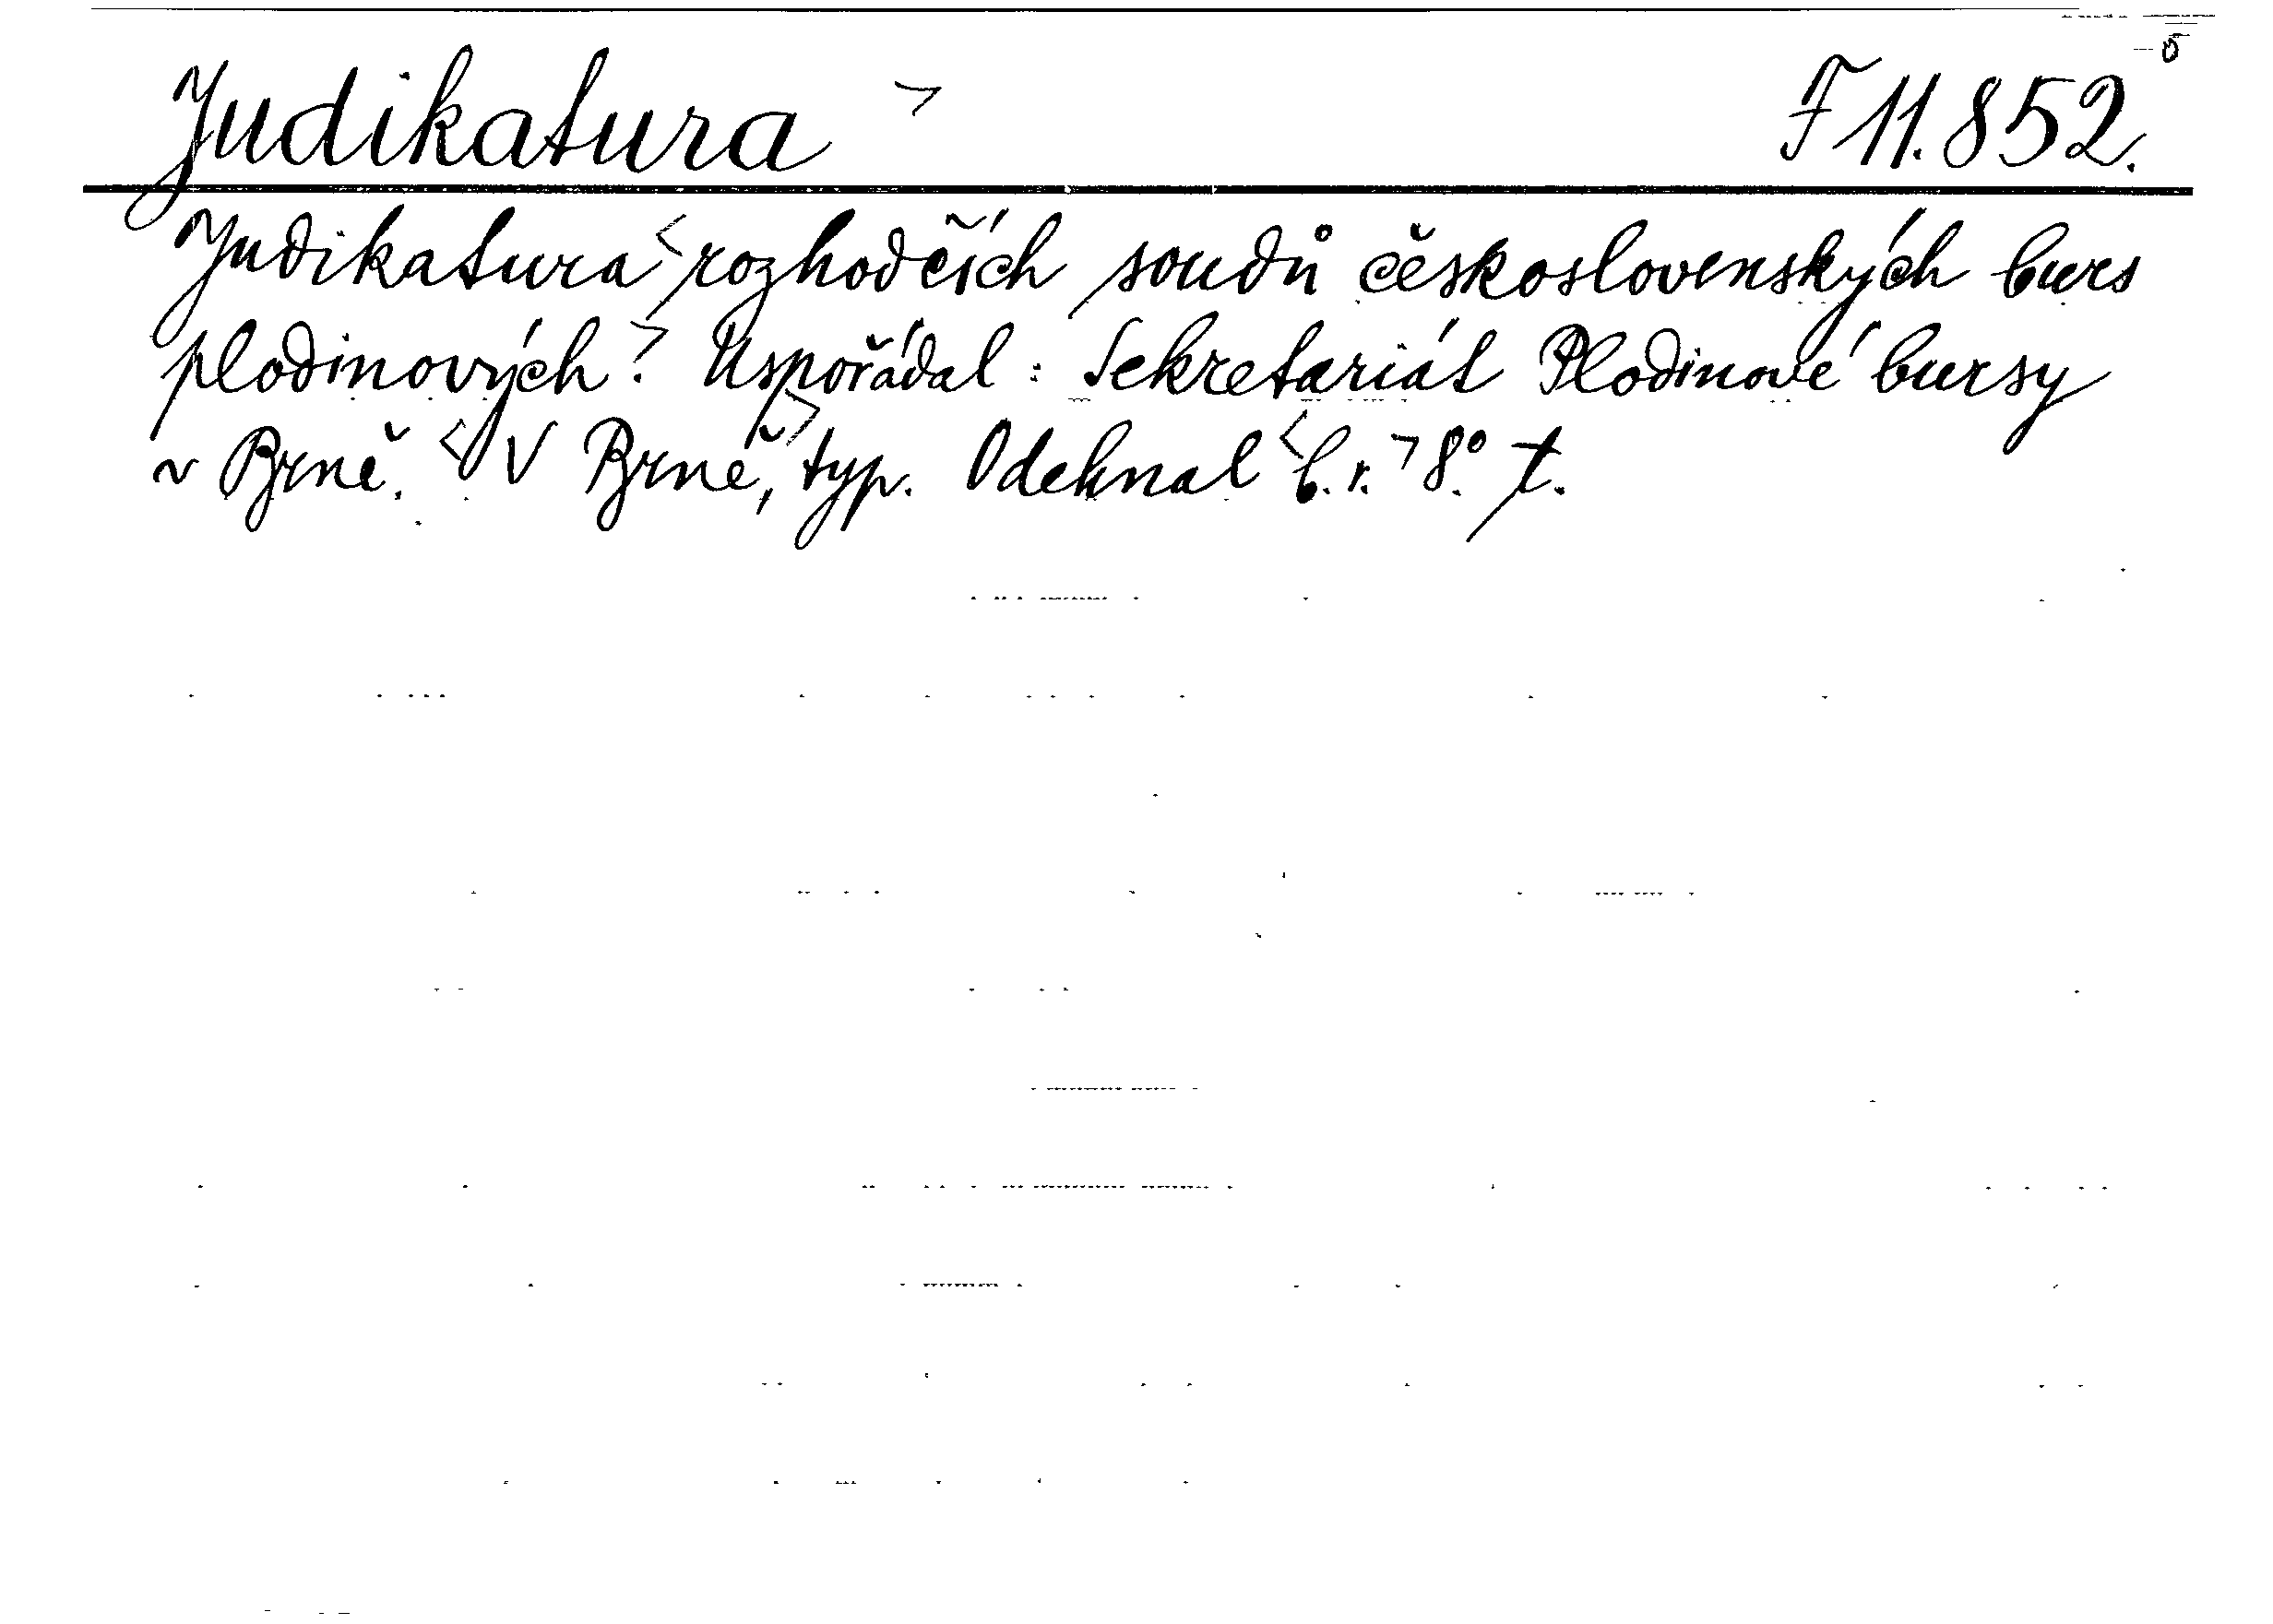 Judikatura > F 11.852.
Judikatura < rozhodčích soudů československých burs
plodinových >. Uspořádal : Sekretariát Plodinové bursy
v Brně. < V Brně, > typ. Odehnal < b. r. > 8°. t.